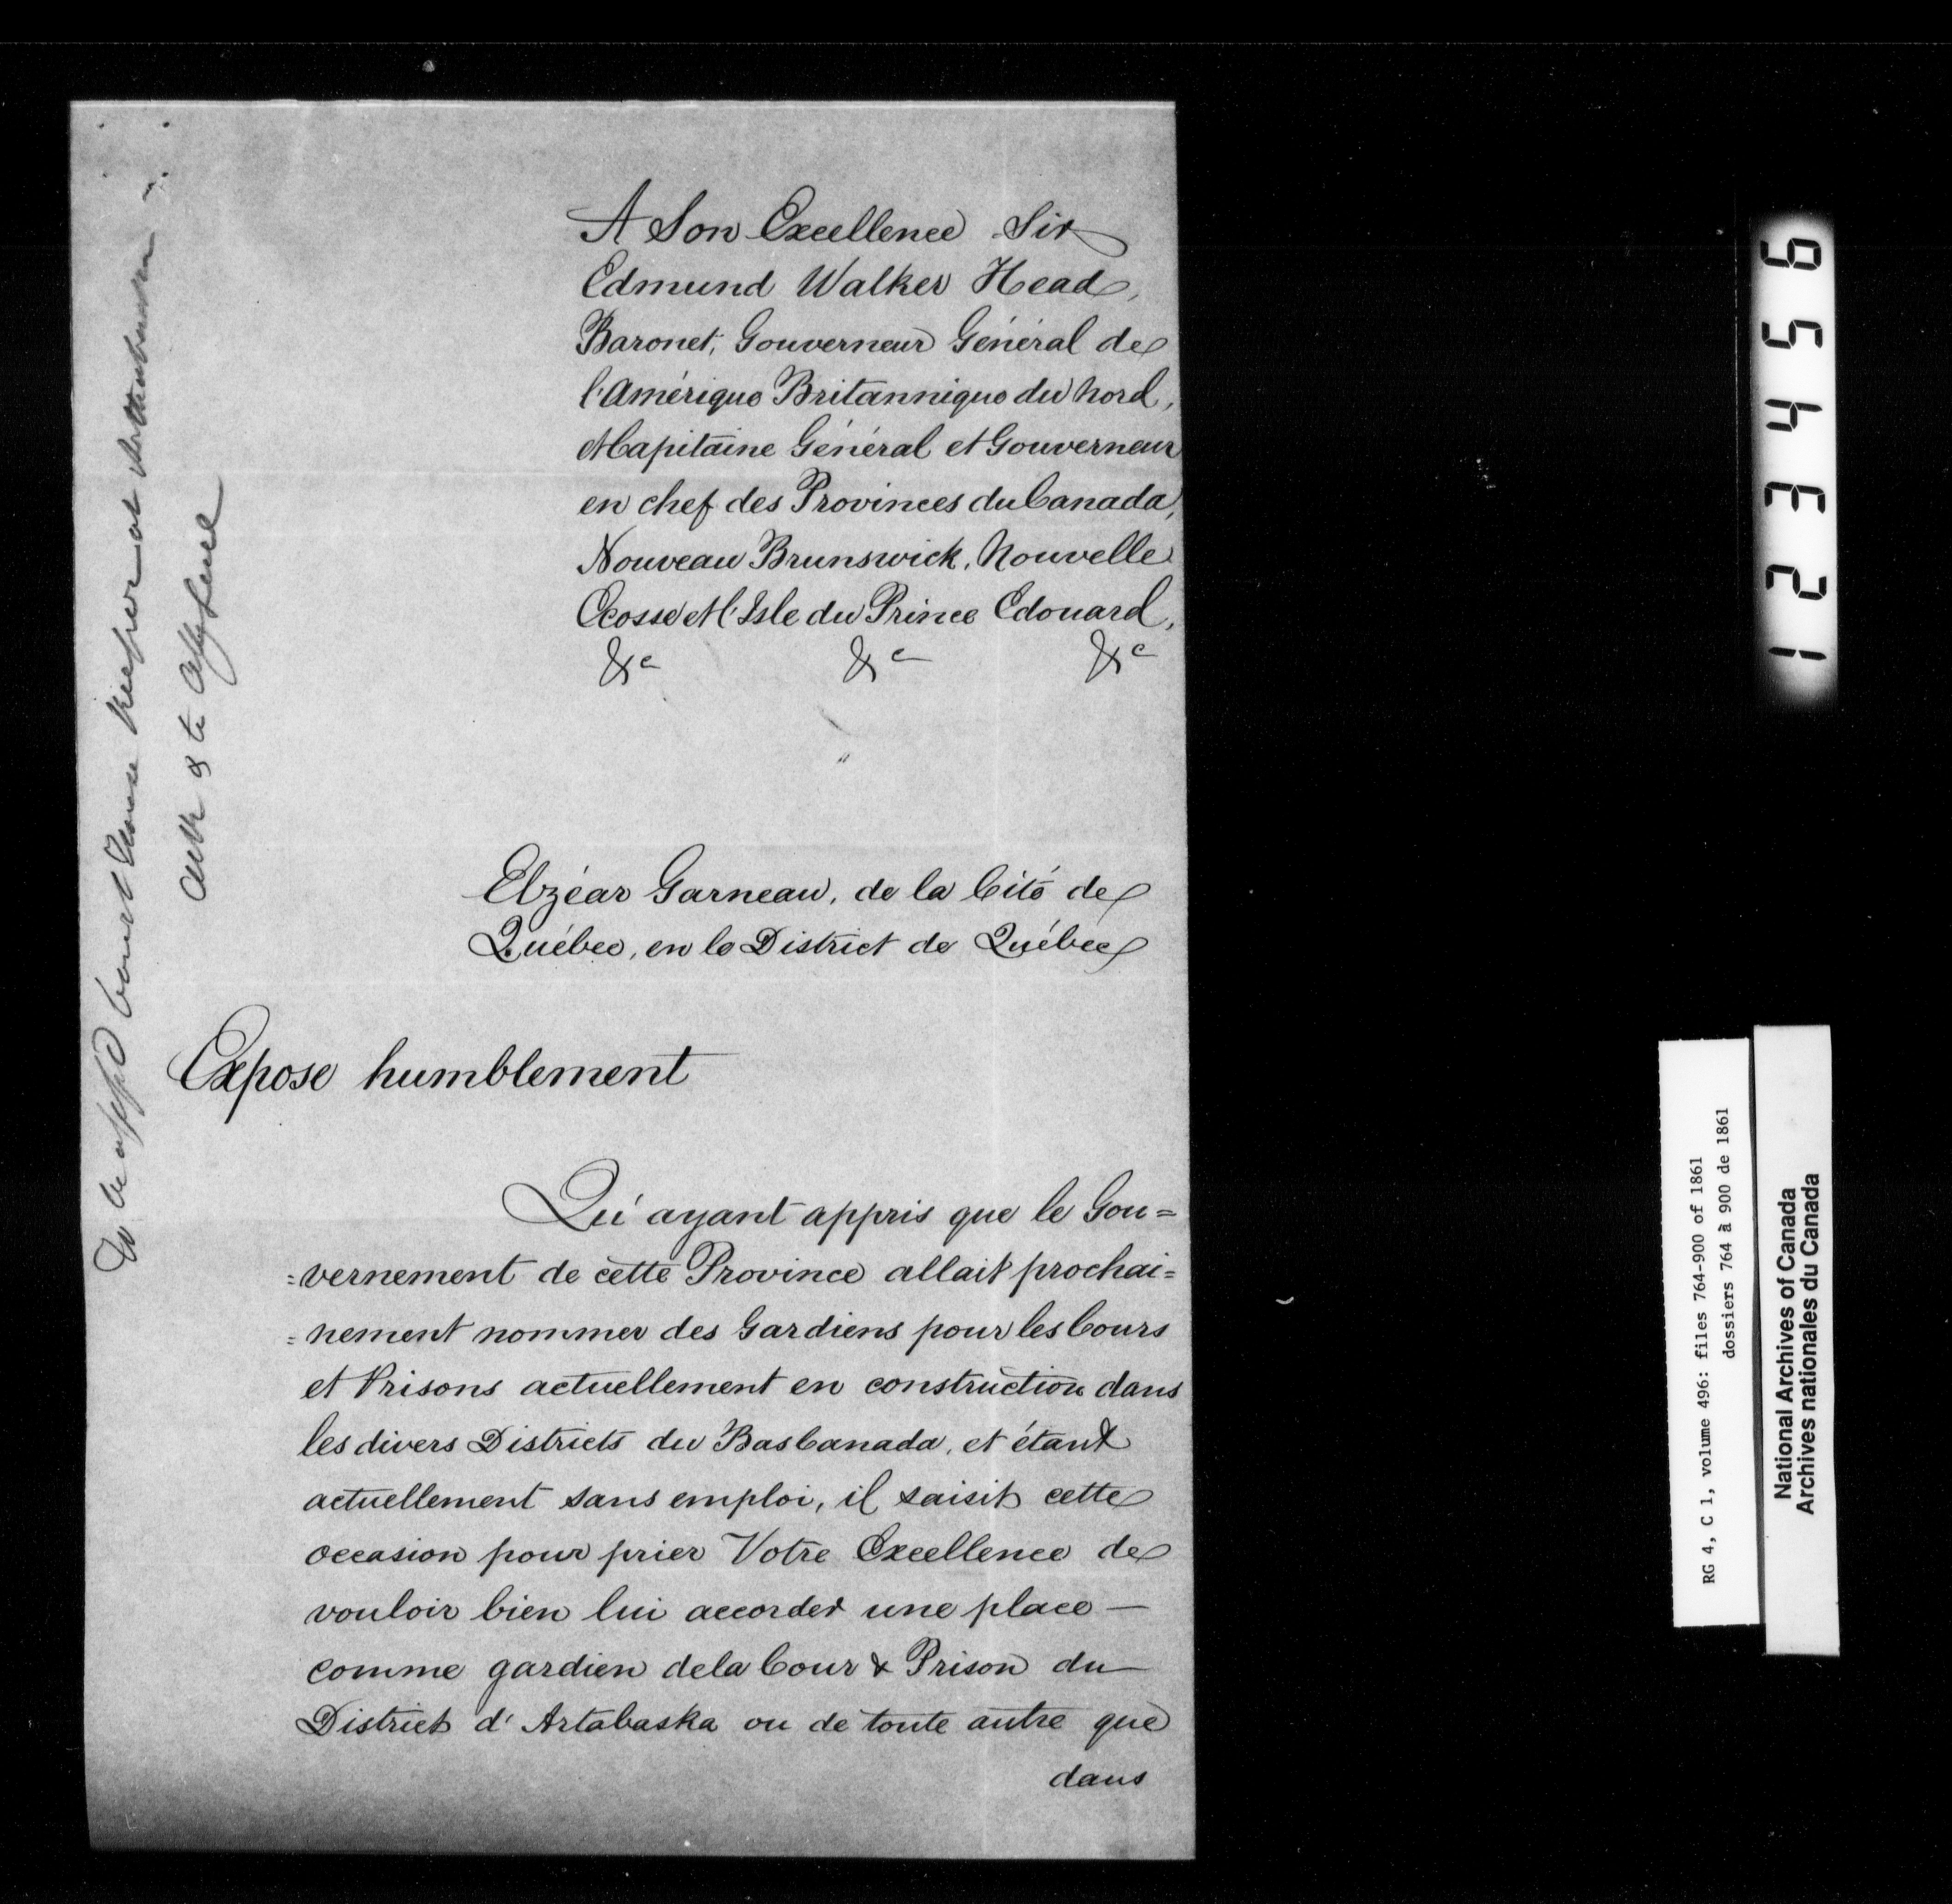 A Son Excellence Sir
Edmund Walker Head,
Baronet, Gouverneur Général de
l'Amérique Britannique du Nord,
et Capitaine Général et Gouverneur
en chef des Provinces du Canada,
Nouveau Brunswick, Nouvelle
Ecosse et l'Isle du Prince Edouard,
&c &c &c
Elzéar Garneau, de la Cité de
Québec, en le District de Québec
Expose humblement
Qu'ayant appris que le Gou=
=vernement de cette Province allait prochai=
=nement nommer des Gardiens pour les Cours
et Prisons actuellement en construction dans
les divers Districts du Bas Canada, et étant
actuellement sans emploi, il saisit cette
occasion pour prier Votre Excellence de
vouloir bien lui accorder une place —
comme gardien de la Cour & Prison du
District d'Artabaska ou de toute autre que
dans
To be appd Court House Keeper at
123456
RG 4, C 1, volume 496: files 764-900 of 1861
dossiers 764 à 900 de 1861
National Archives of Canada
Archives nationales du Canada